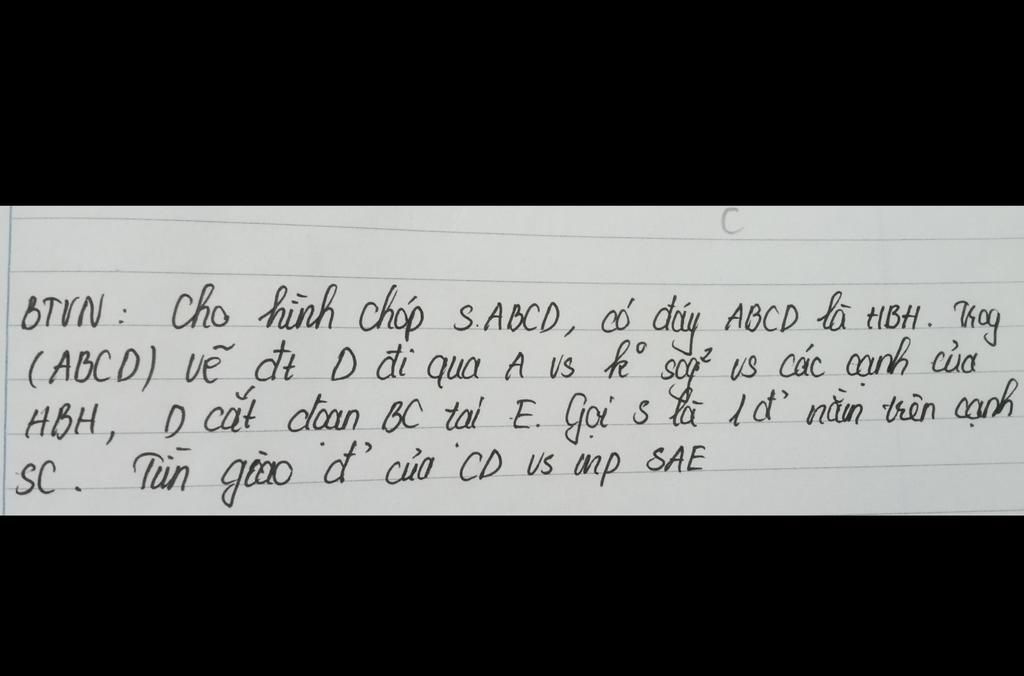 C
BTVN: Cho hình chóp S.ABCD, có đáy ABCD là HBH. Trog
(ABCD) vẽ đt D đi qua A vs k° sog² vs các cạnh của
HBH, D cắt đoạn BC tại E. Gọi S là 1 đ' nằm trên cạnh
SC. Tìm giao đ' của CD vs mp SAE